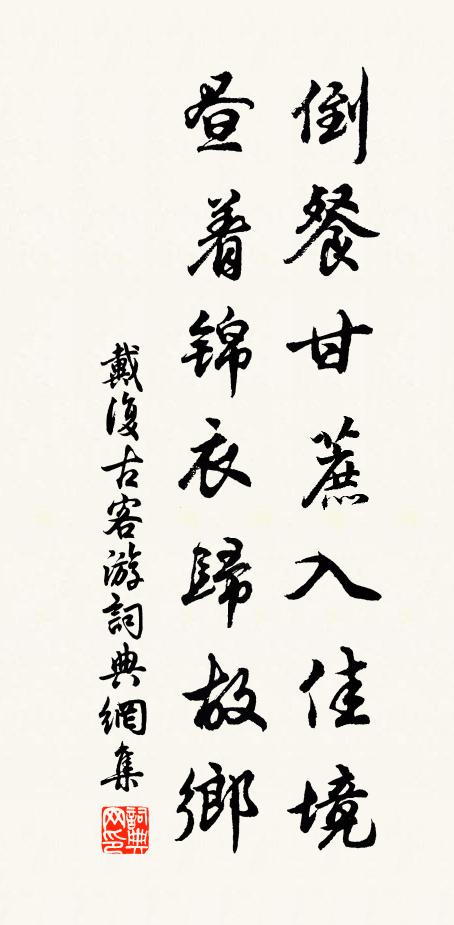 倒餐甘蔗入佳境
晝着錦衣歸故鄉
戴復古客游詞典網集
詞典网印